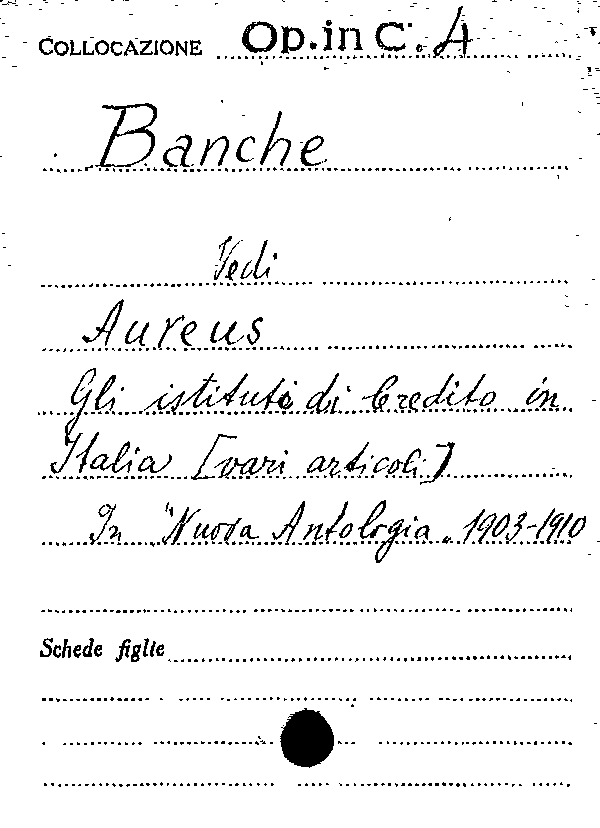 COLLOCAZIONE Op. in C. A
Banche
Vedi
Aureus
Gli istituti di Credito in
Italia [vari articoli]
In "Nuova Antologia" 1903-1910
Schede figlie